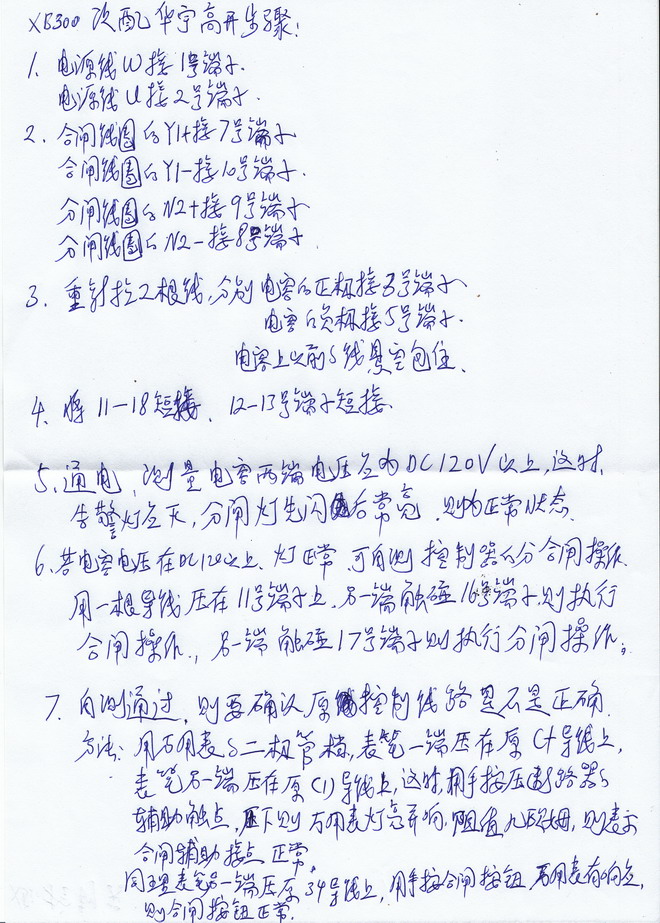 XB300 改配华宇高开步骤:
1. 电源线W接1号端子.
电源线U接2号端子.
2. 合闸线圈的Y1+接7号端子
合闸线圈的Y1-接10号端子.
分闸线圈的N2+接9号端子
分闸线圈的N2-接8号端子.
3. 重新拉2根线,分别电容的正极接3号端子
电容的负极接5号端子.
电容上以前的线悬空包住.
4. 将11-18短接、12-13号端子短接.
5. 通电,测量电容两端电压应为DC120V以上,这时,
告警灯应灭,分闸灯先闪后常亮,则为正常状态.
6. 若电容电压在DC120以上、灯正常,可自测控制器的分合闸操作.
用一根导线压在11号端子上,另一端触碰16号端子则执行
合闸操作,另一端触碰17号端子则执行分闸操作;
7. 自测通过,则要确认原控制线路是不是正确.
方法:用万用表的二极管档,表笔一端压在原C+导线上,
表笔另一端压在原C1)导线上,这时,用手按压断路器的
辅助触点,压下则万用表灯亮并响,阻值几欧姆,则表示
合闸辅助接点正常.
同理表笔另一端压原34导线上,用手按合闸按钮,万用表有响应,
则合闸按钮正常.